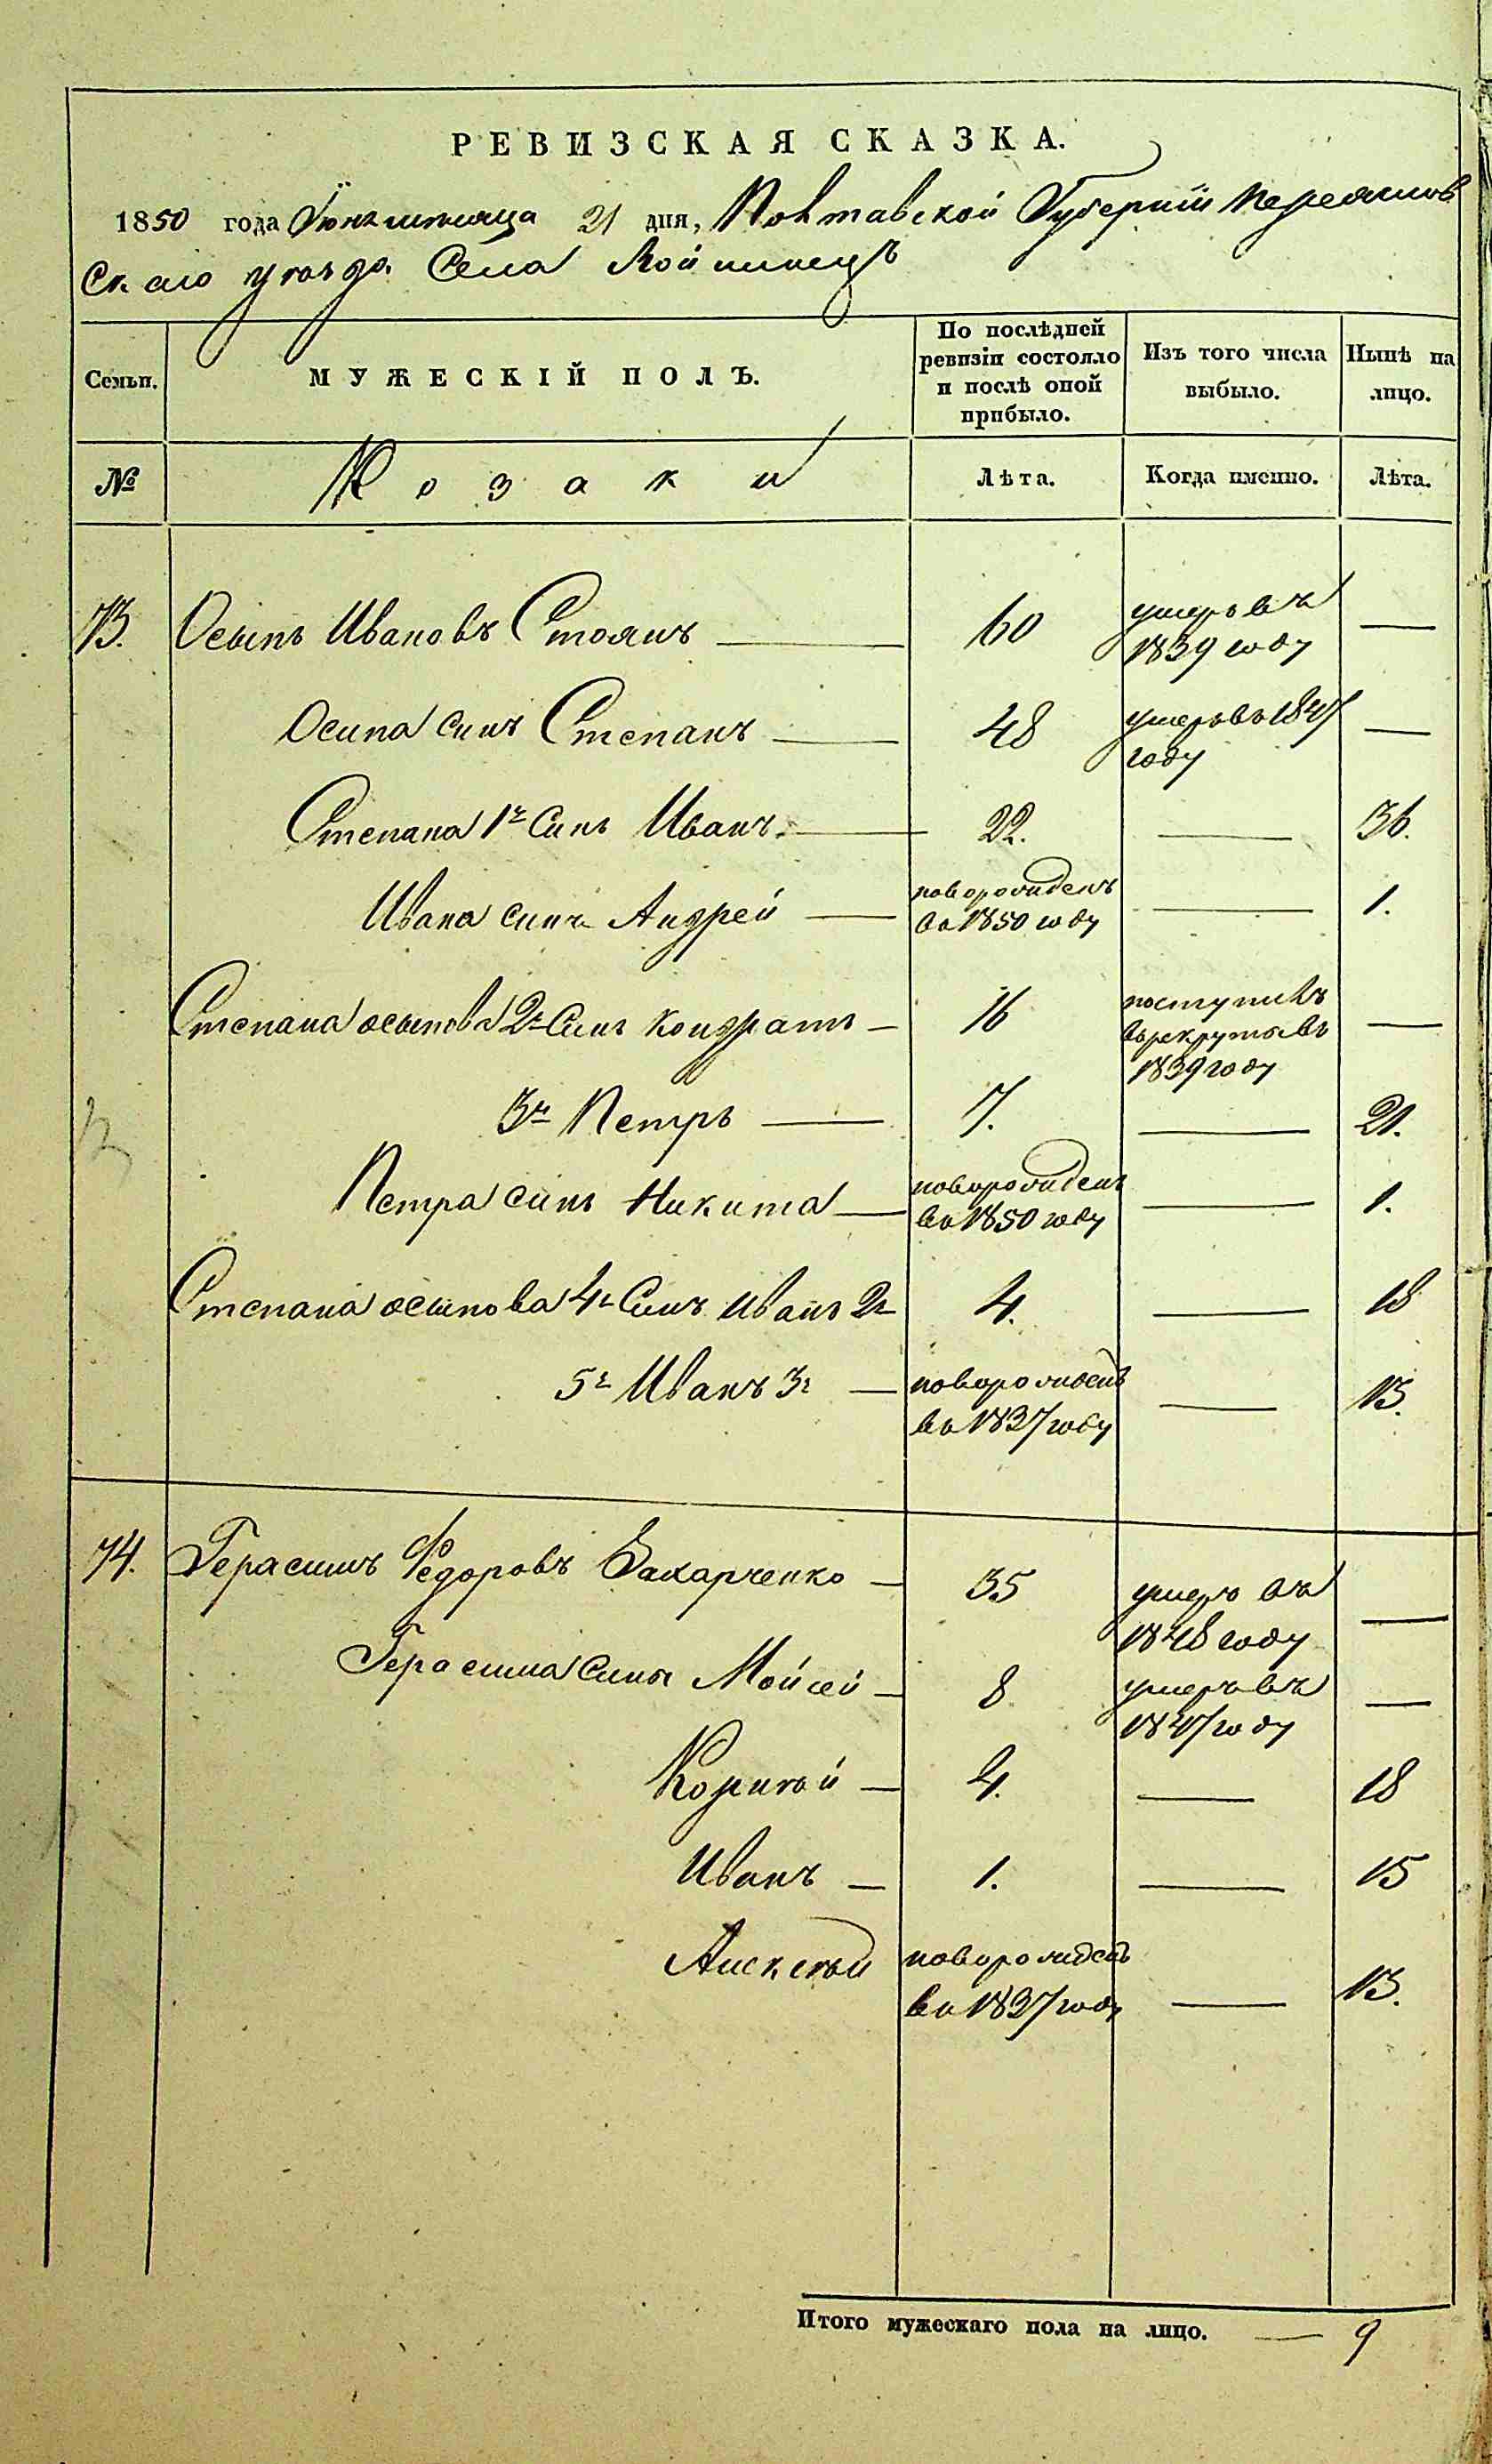 РЕВИЗСКАЯ СКАЗКА.
1850 года Іюня мѣсяца 21 дня, Полтавской Губерніи Переяслов
Скаго уѣзда Села Войтинецъ
Семьи.
МУЖЕСКІЙ ПОЛЪ.
По послѣдней ревизіи состояло и послѣ оной прибыло.
Изъ того числа выбыло.
Нынѣ на лицо.
№ Козаки Лѣта. Когда именно. Лѣта.
73. Осыпъ Ивановъ Стоянъ — 60 умеръ въ 1839 году —
Осипа синъ Степанъ — 48 умеръ въ 1847 году —
Степана 1й Синъ Иванъ. — 22. — 36.
Ивана синъ Андрей — новорожденъ въ 1850 году — 1.
Степана осыпова 2й Синъ Кондратъ — 16 поступилъ въ рекруты въ 1839 году —
3й Петръ — 7. — 21.
Петра синъ Никита — новорожденъ въ 1850 году — 1.
Степана осыпова 4й Синъ Иванъ 2й 4. — 18
5й Иванъ 3й — новорожденъ въ 1837 году — 13.
74. Герасимъ Федоровъ Захарченко — 35 умеръ въ 1848 году —
Герасима Сины Мойсей — 8 умеръ въ 1847 году —
Корнѣй — 4. — 18
Иванъ — 1. — 15
Алексѣй новорожденъ въ 1837 году — 13.
Итого мужескаго пола на лицо. — 9